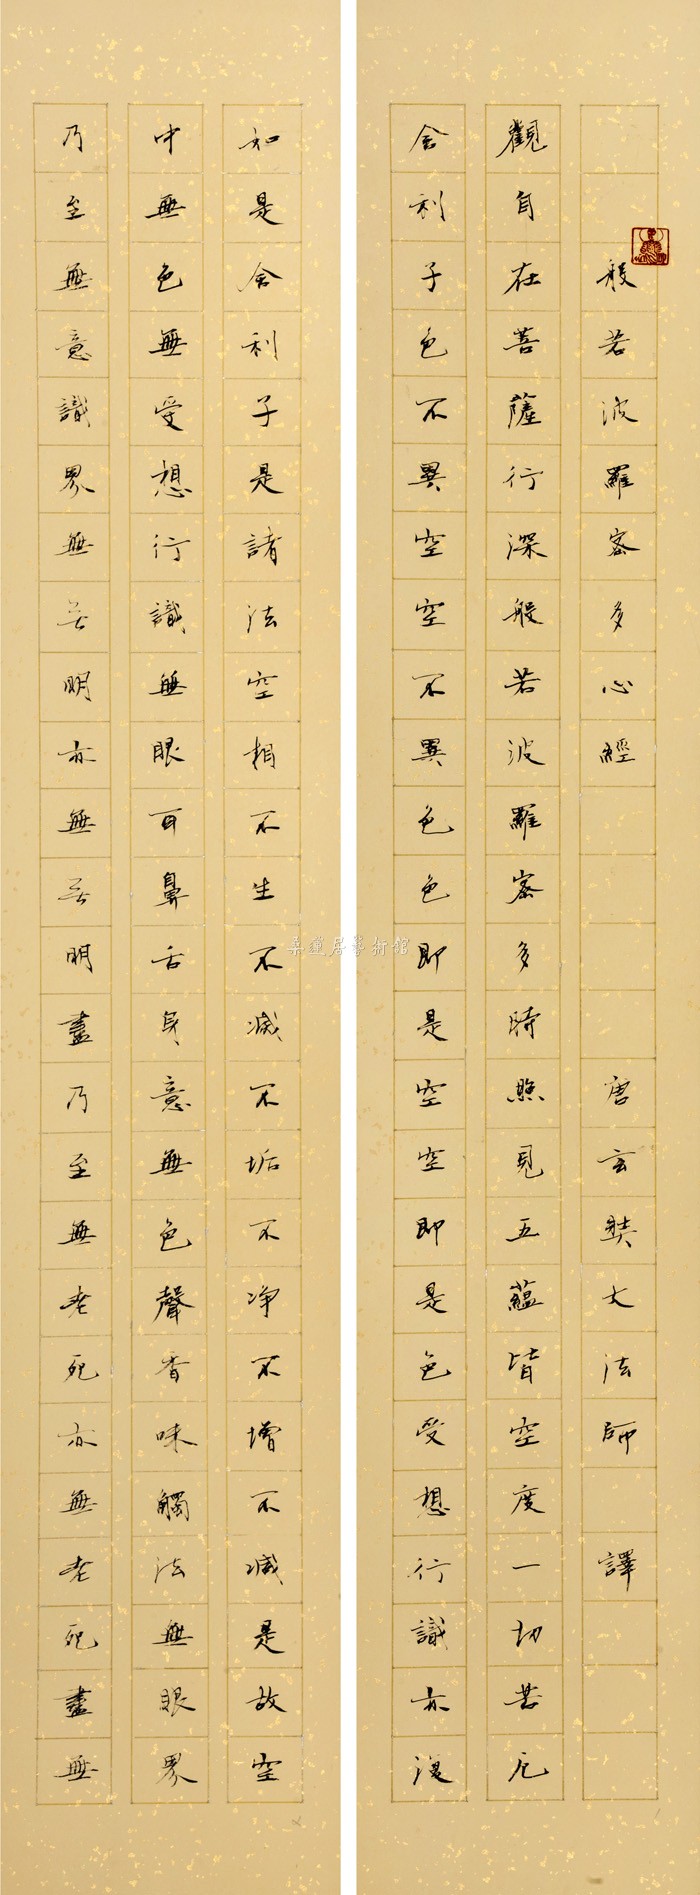 般若波羅密多心經 唐玄奘大法師 譯
觀自在菩薩行深般若波羅密多時照見五蘊皆空度一切苦厄
舍利子色不異空空不異色色即是空空即是色受想行識亦復
如是舍利子是諸法空相不生不滅不垢不净不增不減是故空
中無色無受想行識無眼耳鼻舌身意無色聲香味觸法無眼界
乃至無意識界無無明亦無無明盡乃至無老死亦無老死盡無
桑蓮居藝術館